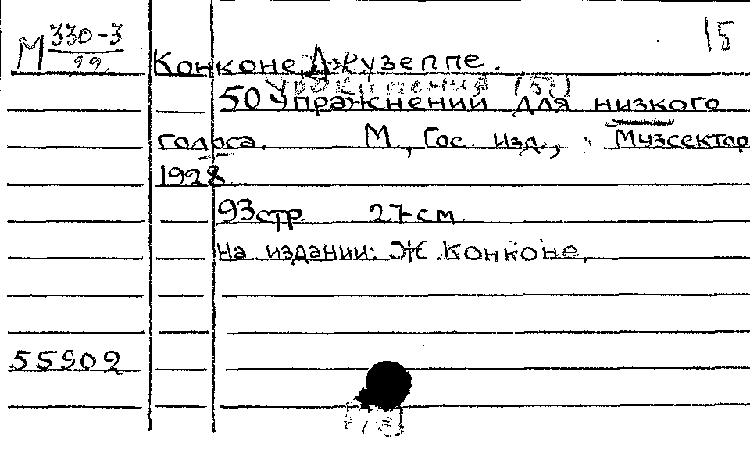 М 330-3
99
15
Конконе Джузеппе.
Упражнения (50)
50 Упражнений для низкого
голоса. М, Гос. изд., Музсектор
1928
93 стр 27 см
На издании: Ж. Конконе,
55902